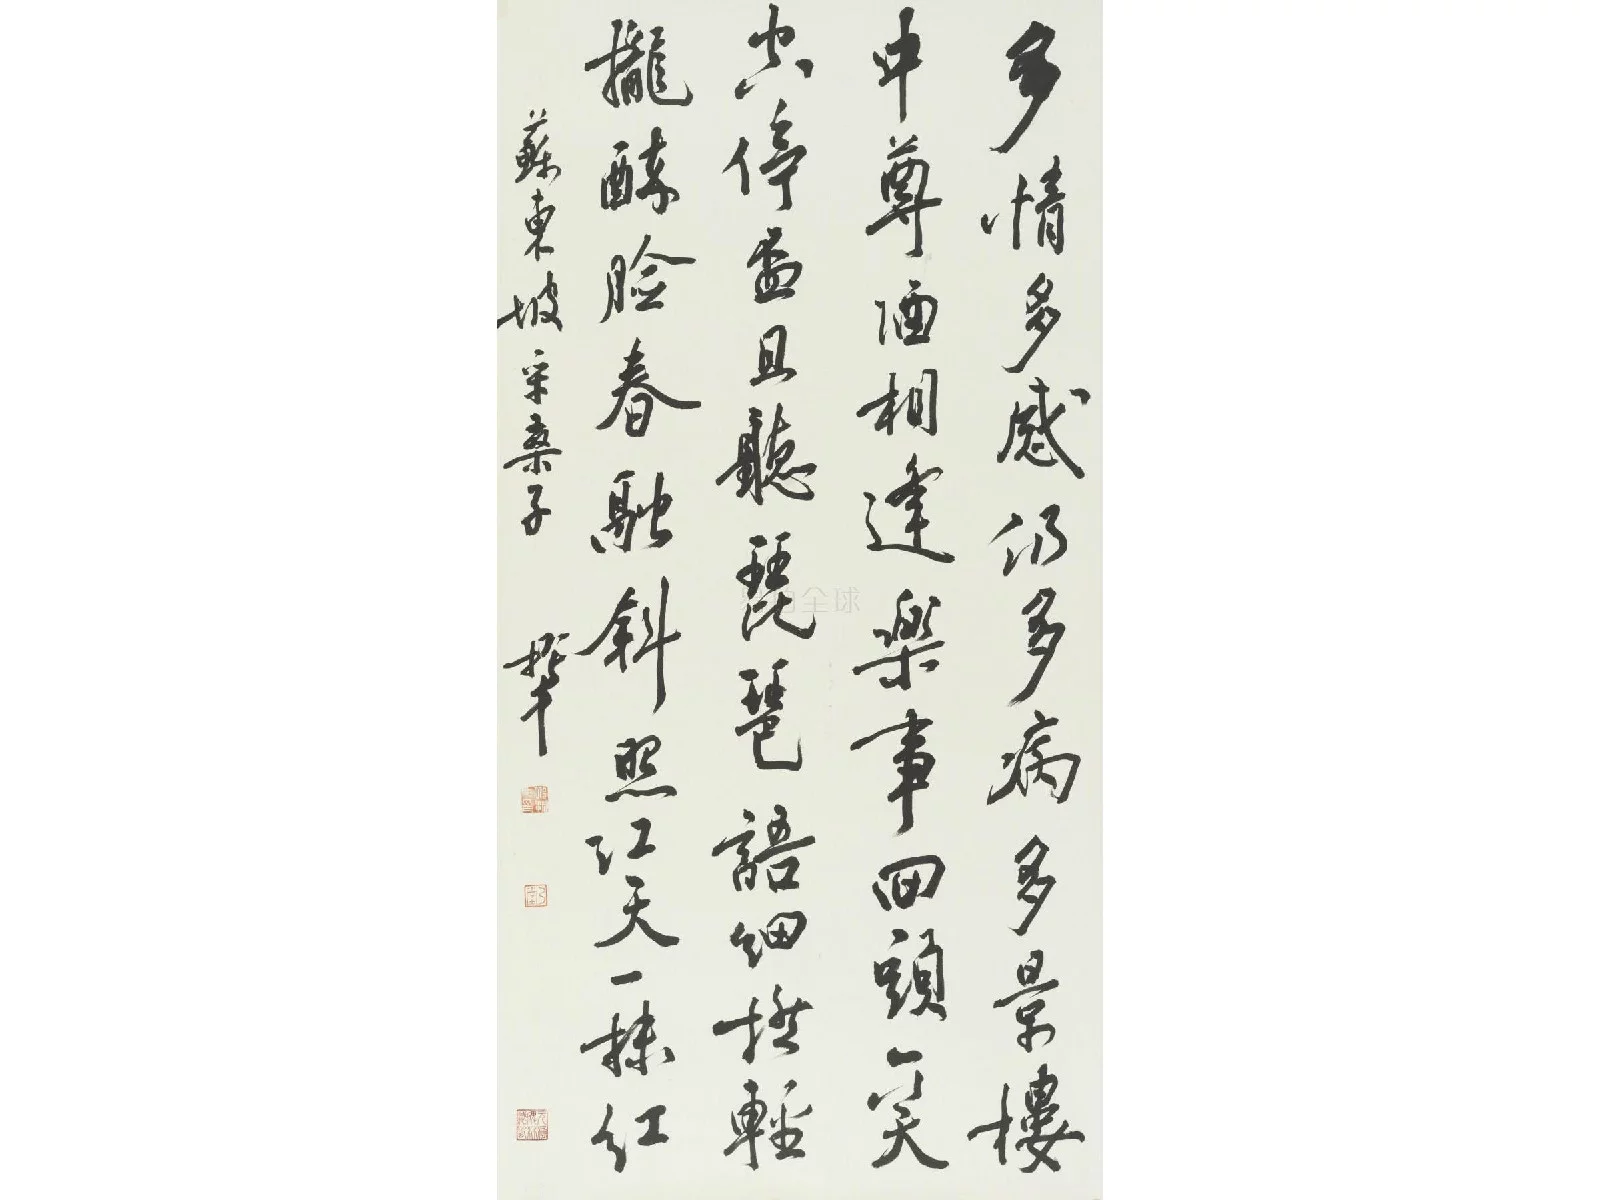 多情多感仍多病多景樓
中尊酒相逢樂事回頭一笑
空停盃且聽琵琶語細撚輕
攏醉臉春融斜照江天一抹紅
蘇東坡采桑子
全球